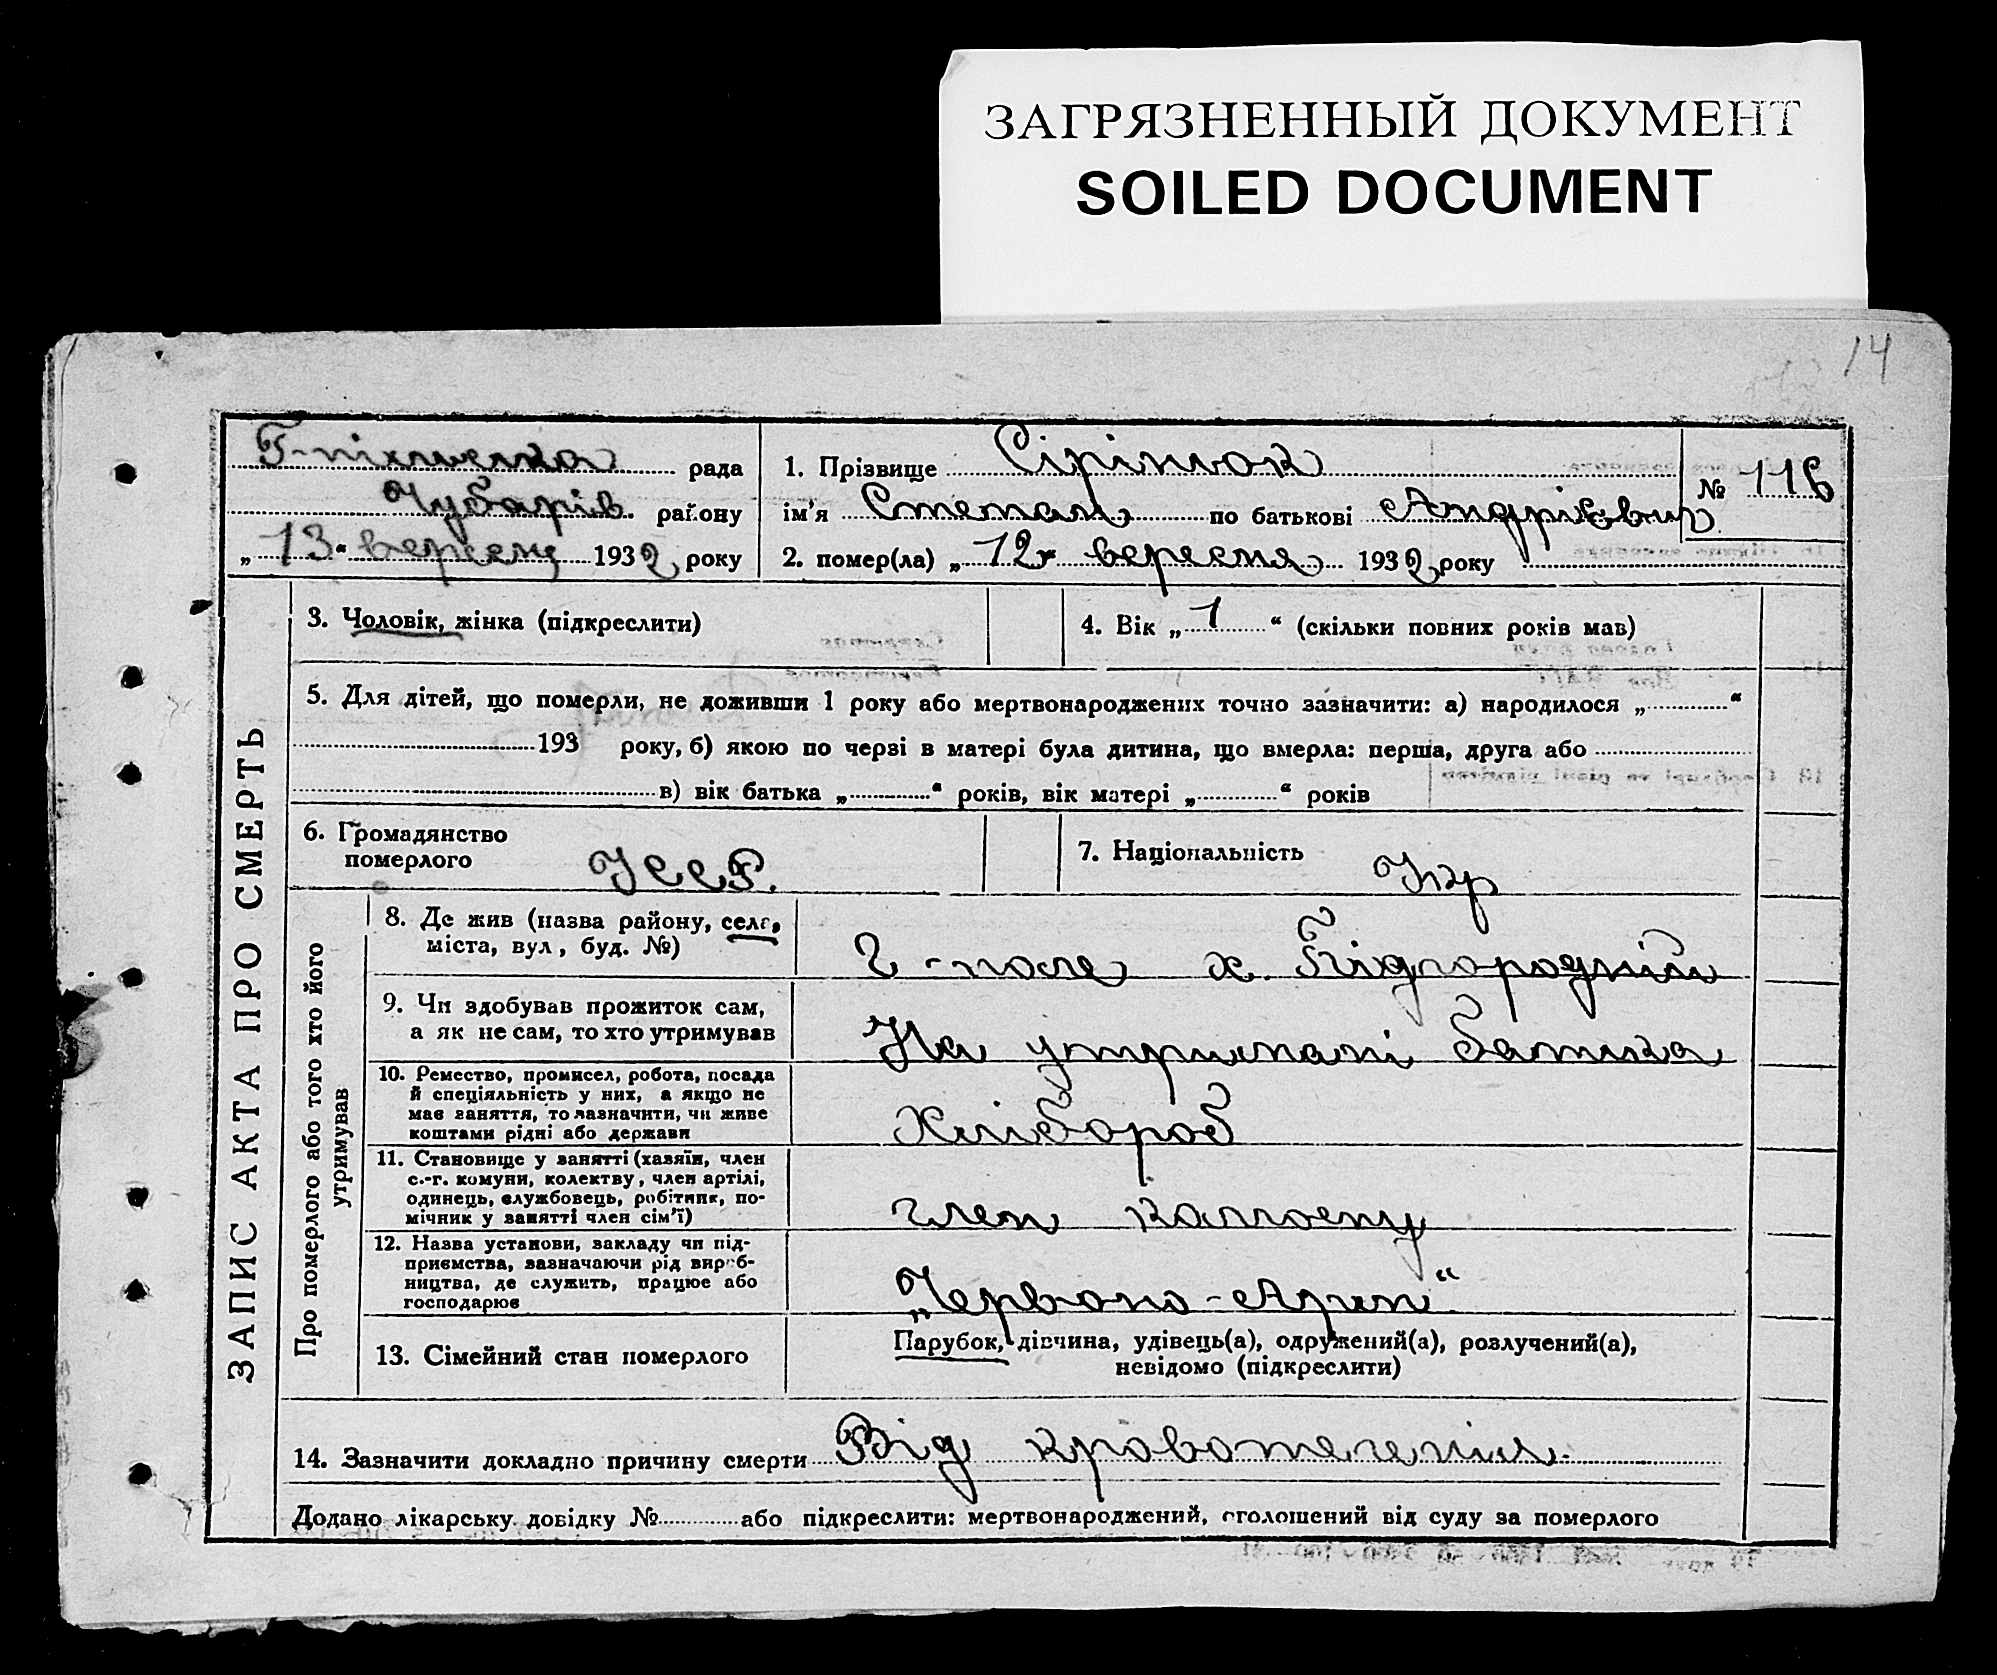 ЗАГРЯЗНЕННЫЙ ДОКУМЕНТ
SOILED DOCUMENT
14
рада
Чубарів. району
„13“ вересня 1932 року
1. Прізвище Сірінчок
№ 116
ім'я Степан по батькові Андрієвич
2. помер(ла) „12“ вересня 1932 року
ЗАПИС АКТА ПРО СМЕРТЬ
3. Чоловік, жінка (підкреслити)
4. Вік „1“ (скільки повних років мав)
5. Для дітей, що померли, не доживши 1 року або мертвонароджених точно зазначити: а) народилося „ “
193 року, б) якою по черзі в матері була дитина, що вмерла: перша, друга або
в) вік батька „ “ років, вік матері „ “ років
6. Громадянство
померлого УССР.
7. Національність Укр
Про померлого або того хто його
утримував
8. Де жив (назва району, села,
міста, вул, буд. №)
Г-поле х. Підгородній
9. Чи здобував прожиток сам,
а як не сам, то хто утримував
На утримані батька
10. Ремество, промисел, робота, посада
й спеціяльність у них, а якщо не
має заняття, то зазначити, чи живе
коштами рідні або держави
Хлібороб
11. Становище у занятті (хазяїн, член
с.-г. комуни, колектву, член артілі,
одинець, службовець, робітник, по-
мічник у занятті член сім'ї)
член колгоспу
12. Назва установи, закладу чи під-
приємства, зазначаючи рід вироб-
ництва, де служить, працює або
господарює
13. Сімейний стан померлого
Парубок, дівчина, удівець(а), одружений(а), розлучений(а),
невідомо (підкреслити)
14. Зазначити докладно причину смерти Від кровотеченія.
Додано лікарську довідку № або підкреслити: мертвонароджений, оголошений від суду за померлого